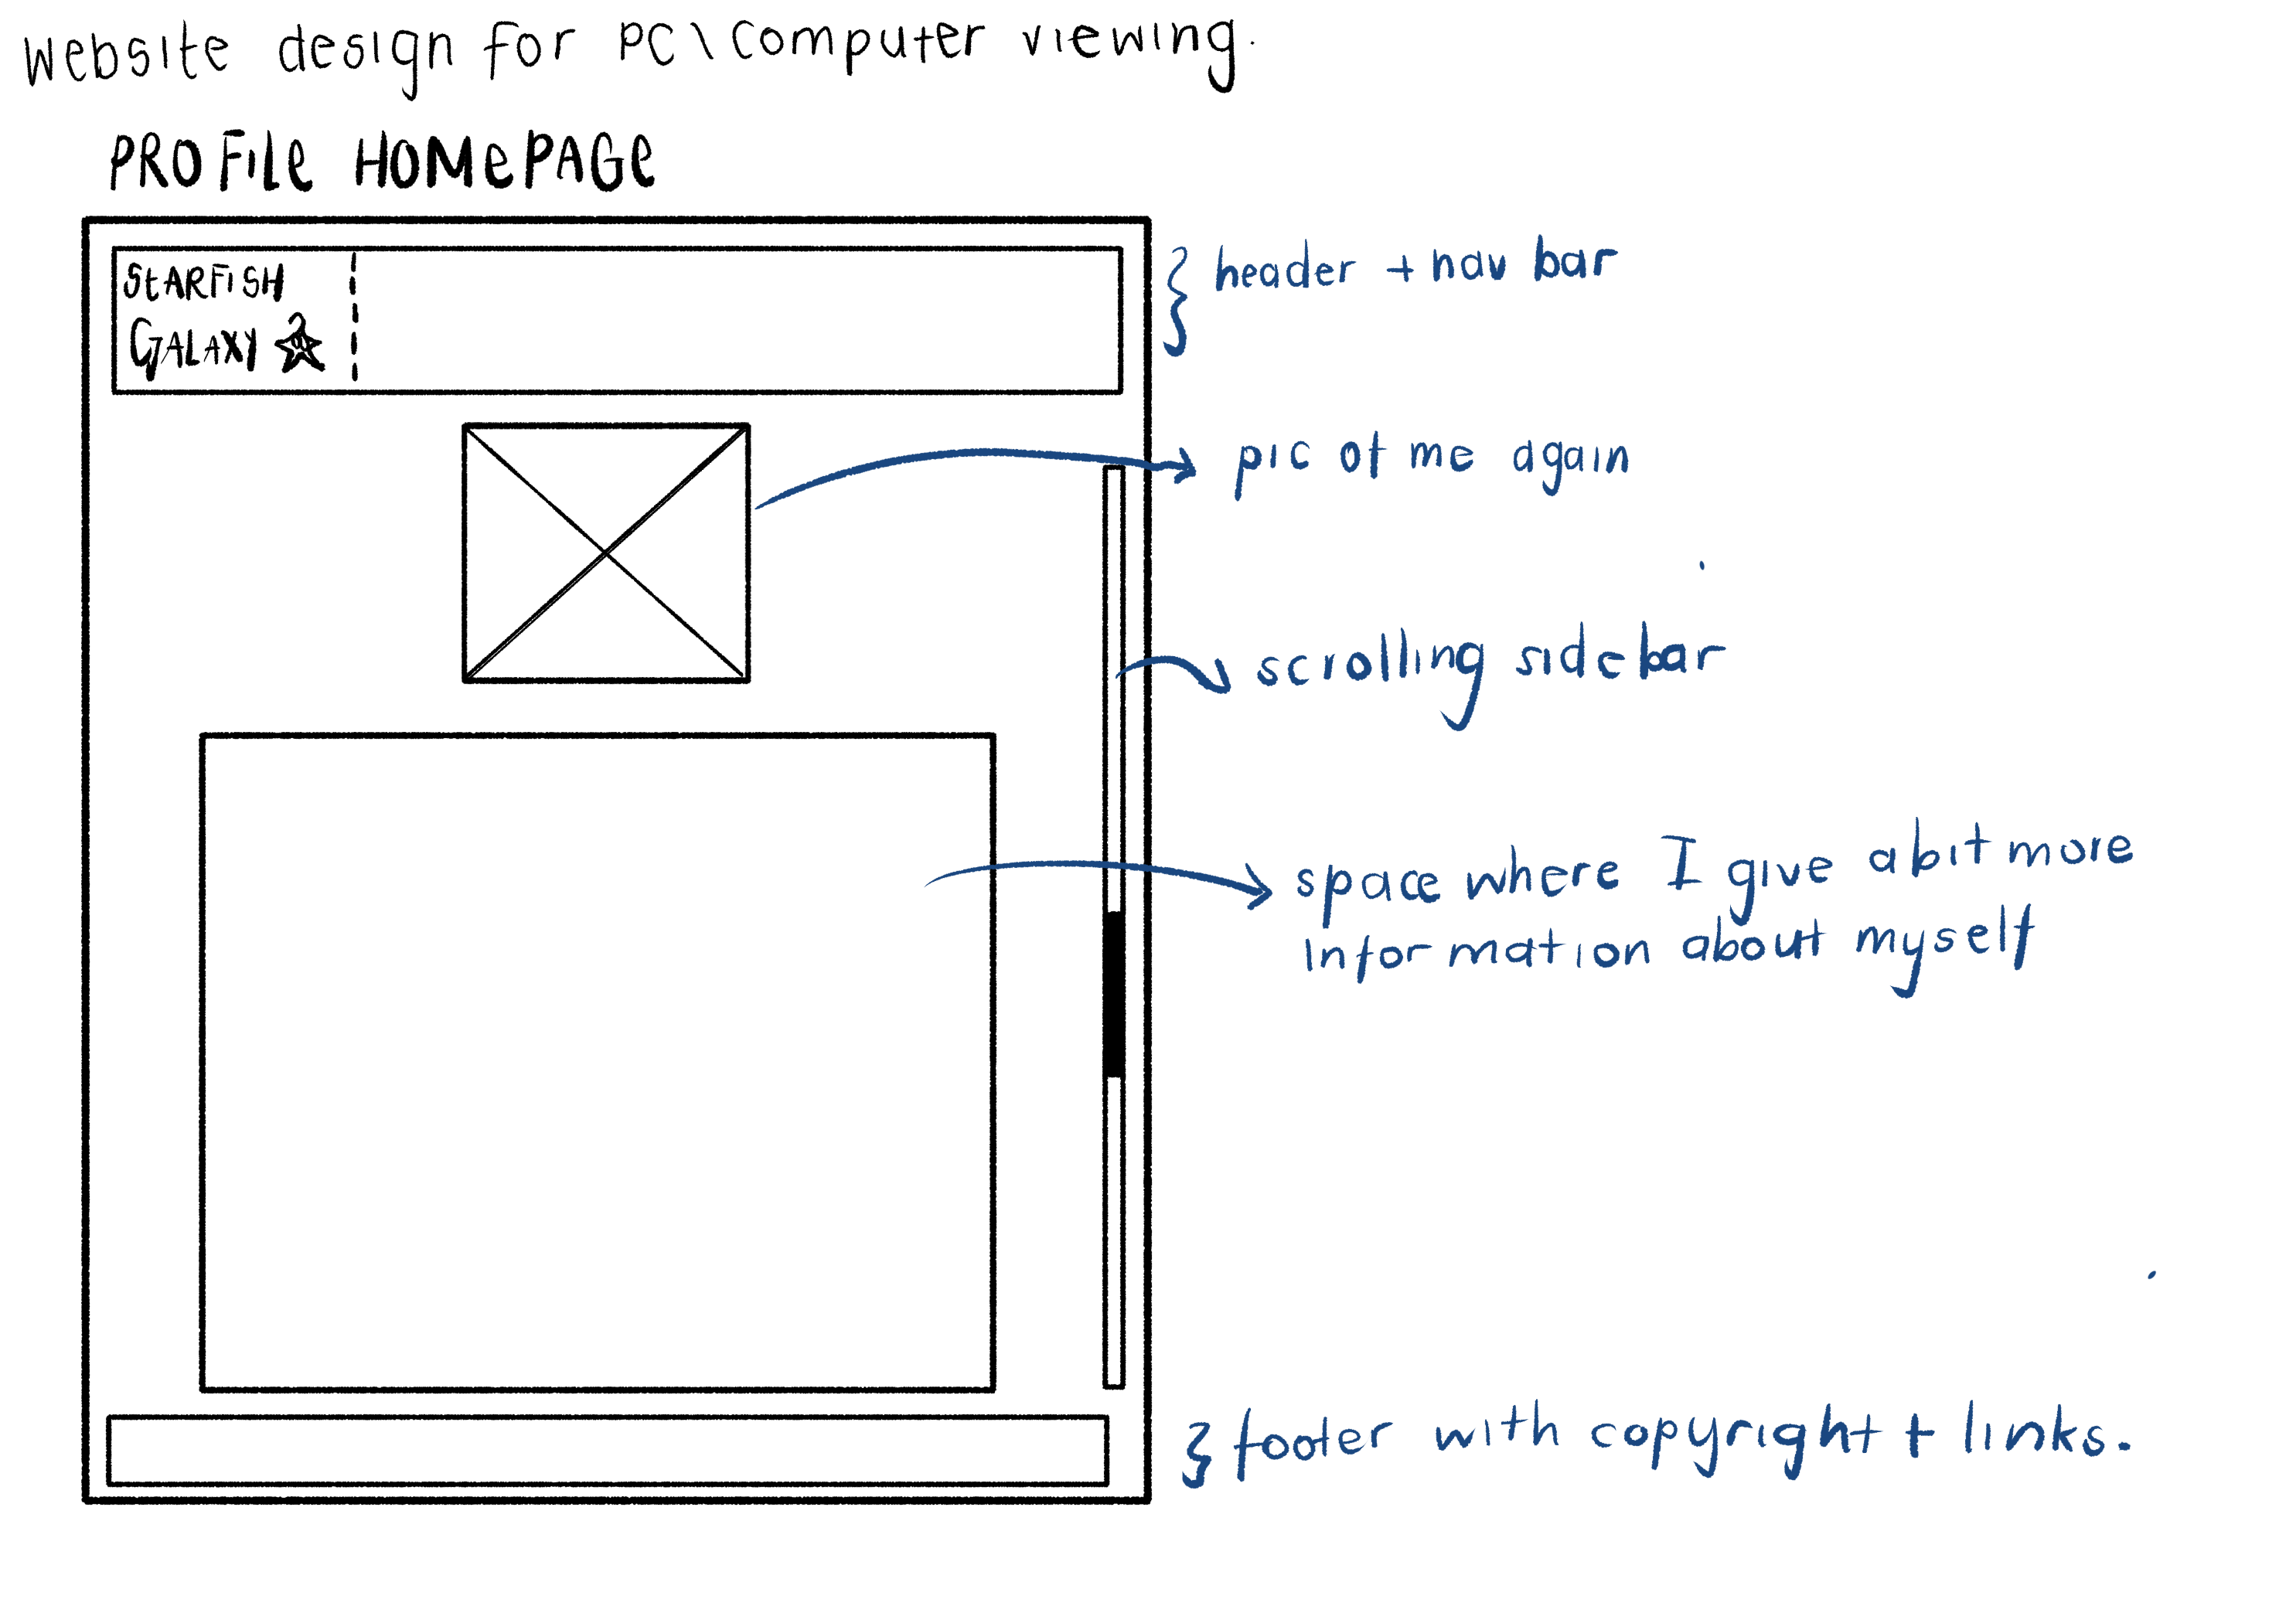 Website design for PC\Computer viewing.
PROFILE HOMEPAGE
STARFISH
GALAXY
header + nav bar
pic of me again
scrolling sidebar
space where I give a bit more
information about myself
footer with copyright + links.